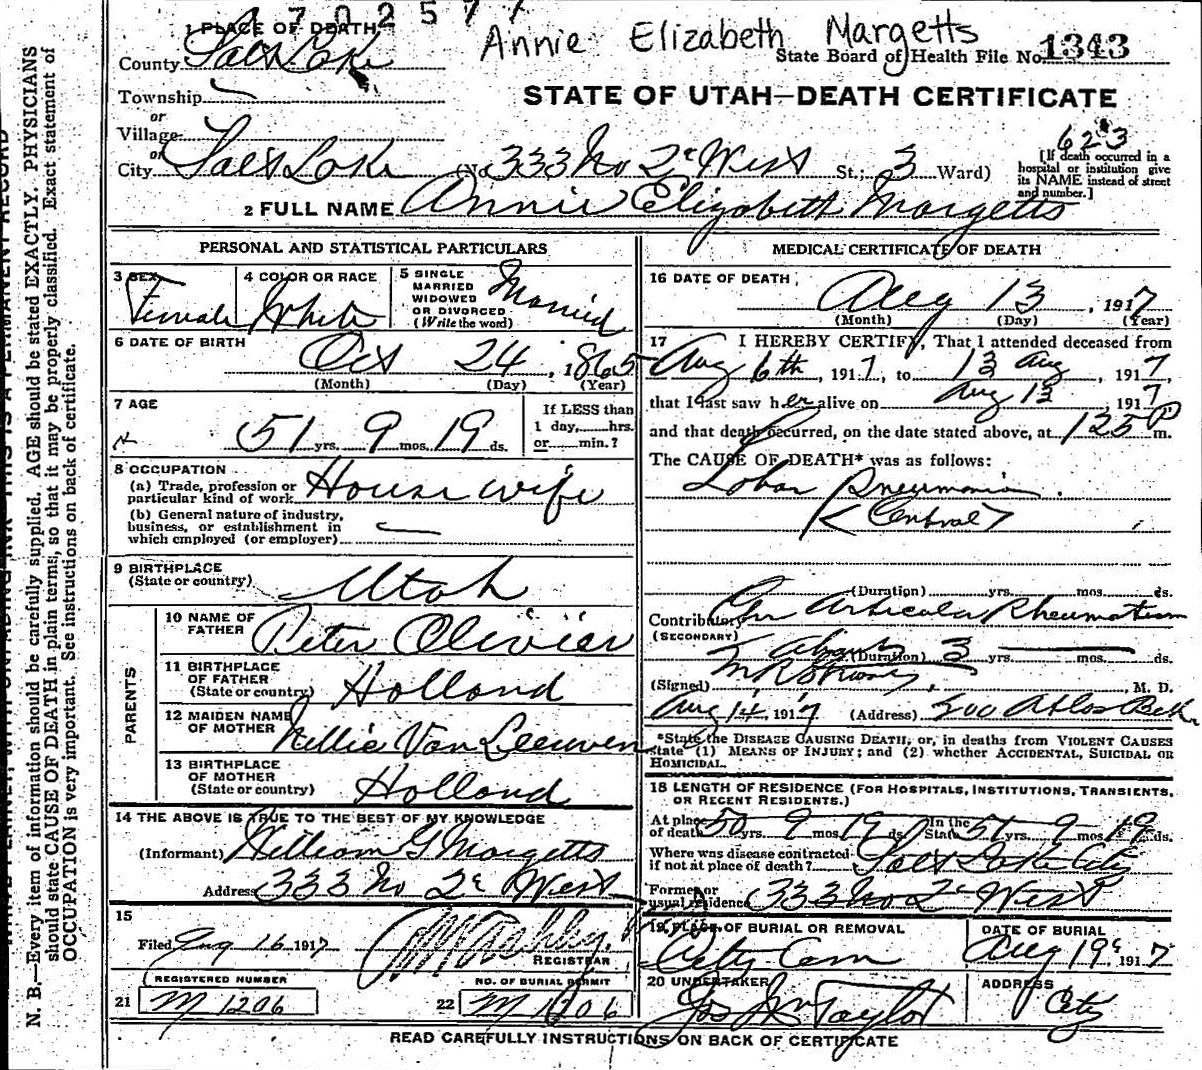 1702577
Annie Elizabeth Margetts
State Board of Health File No. 1343
1 PLACE OF DEATH
County Salt Lake
Township
or
Village
or
City Salt Lake (No 333 No 2d West St.; 3 Ward)
STATE OF UTAH—DEATH CERTIFICATE
[If death occurred in a hospital or institution give its NAME instead of street and number.]
2 FULL NAME Annie Elizabeth Margetts
PERSONAL AND STATISTICAL PARTICULARS
3 SEX Female
4 COLOR OR RACE White
5 SINGLE MARRIED WIDOWED OR DIVORCED (Write the word) Married
6 DATE OF BIRTH Oct 24, 1865
(Month) (Day) (Year)
7 AGE 51 yrs. 9 mos. 19 ds.
If LESS than
1 day,......hrs.
or......min.?
8 OCCUPATION
(a) Trade, profession or
particular kind of work House wife
(b) General nature of industry,
business, or establishment in
which employed (or employer)
9 BIRTHPLACE
(State or country) Utah
PARENTS
10 NAME OF FATHER Peter Olivier
11 BIRTHPLACE OF FATHER (State or country) Holland
12 MAIDEN NAME OF MOTHER Nillie Van Leeuwen
13 BIRTHPLACE OF MOTHER (State or country) Holland
14 THE ABOVE IS TRUE TO THE BEST OF MY KNOWLEDGE
(Informant) William G Margetts
Address 333 No 2d West
15
Filed Aug 16 1917
REGISTRAR
REGISTERED NUMBER
21 M 1206
NO. OF BURIAL PERMIT
22 M 1206
MEDICAL CERTIFICATE OF DEATH
16 DATE OF DEATH Aug 13, 1917
(Month) (Day) (Year)
17 I HEREBY CERTIFY, That I attended deceased from
Aug 6th, 1917, to 13 Aug, 1917
that I last saw her alive on Aug 13 1917
and that death occurred, on the date stated above, at 125 P m.
The CAUSE OF DEATH* was as follows:
Lobar Pneumonia.
(Central)
(Duration) yrs. mos. ds.
Contributory Articular Rheumatism
(SECONDARY)
About (Duration) 3 yrs. mos. ds.
(Signed) M. D.
Aug 14, 1917 (Address) 500 Atlas
*State the DISEASE CAUSING DEATH, or, in deaths from VIOLENT CAUSES
state (1) MEANS OF INJURY; and (2) whether ACCIDENTAL, SUICIDAL OR
HOMICIDAL.
18 LENGTH OF RESIDENCE (FOR HOSPITALS, INSTITUTIONS, TRANSIENTS,
OR RECENT RESIDENTS.)
At place of death 50 yrs. 9 mos. 19 ds. In the State 51 yrs. 9 mos. 19 ds.
Where was disease contracted
if not at place of death? Salt Lake City
Former or
usual residence 333 No 2d West
19 PLACE OF BURIAL OR REMOVAL City Cem
DATE OF BURIAL Aug 19, 1917
20 UNDERTAKER Jos Wm Taylor
ADDRESS City
READ CAREFULLY INSTRUCTIONS ON BACK OF CERTIFICATE
N. B.—Every item of information should be carefully supplied. AGE should be stated EXACTLY. PHYSICIANS
should state CAUSE OF DEATH in plain terms, so that it may be properly classified. Exact statement of
OCCUPATION is very important. See instructions on back of certificate.